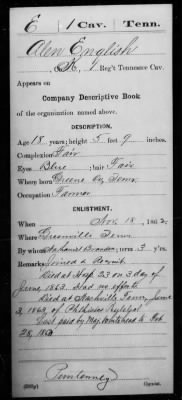 E | 1 Cav. | Tenn.
Alen English
, 1 Reg't Tennessee Cav.
Appears on
Company Descriptive Book
of the organization named above.
DESCRIPTION.
Age 18 years; height 5 feet 9 inches.
Complexion Fair
Eyes Blue; hair Fair
Where born Greene Co, Tenn
Occupation Farmer
ENLISTMENT.
When Nov. 18, 1862.
Where Greenville Tenn
By whom Nathaniel; term 3 y'rs.
Remarks: Joined a Recruit
Died at Hosp. 23 on 3 day of
June, 1863. Had no effects
Died at Nashville Tenn, June
3, 1863, of Phthisis
Last paid by Maj. Whitehead to Feb
28, 1863
Copyist.